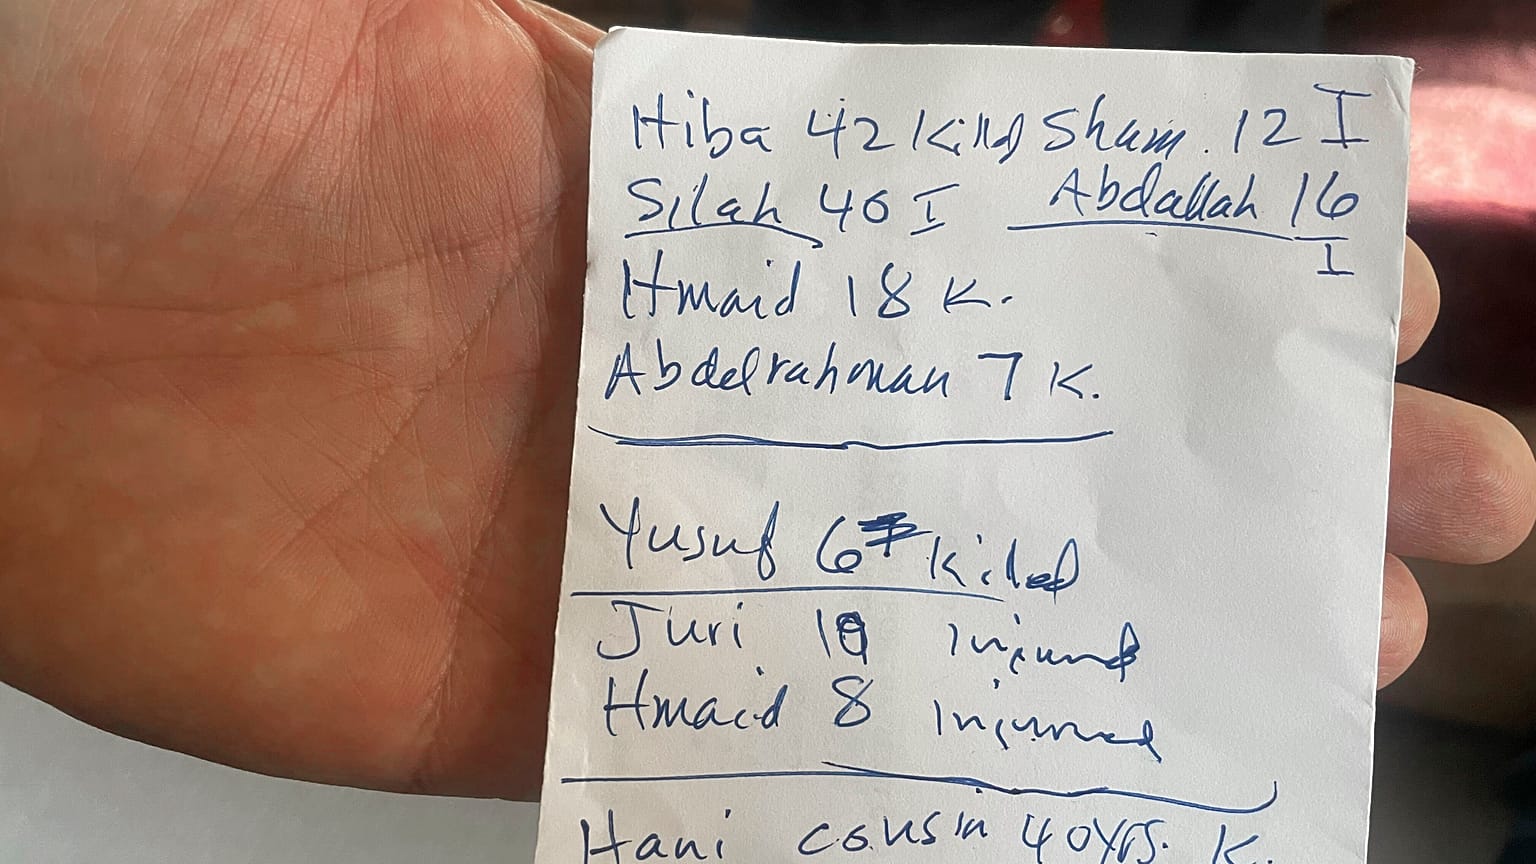 Hiba 42 Killed Sham. 12 I
Silah 40 I Abdallah 16
I
Hmaid 18 K.
Abdelrahman 7 K.
Yusuf 6 Killed
Juri 10 injured
Hmaid 8 injured
Hani cousin 40yrs. K.